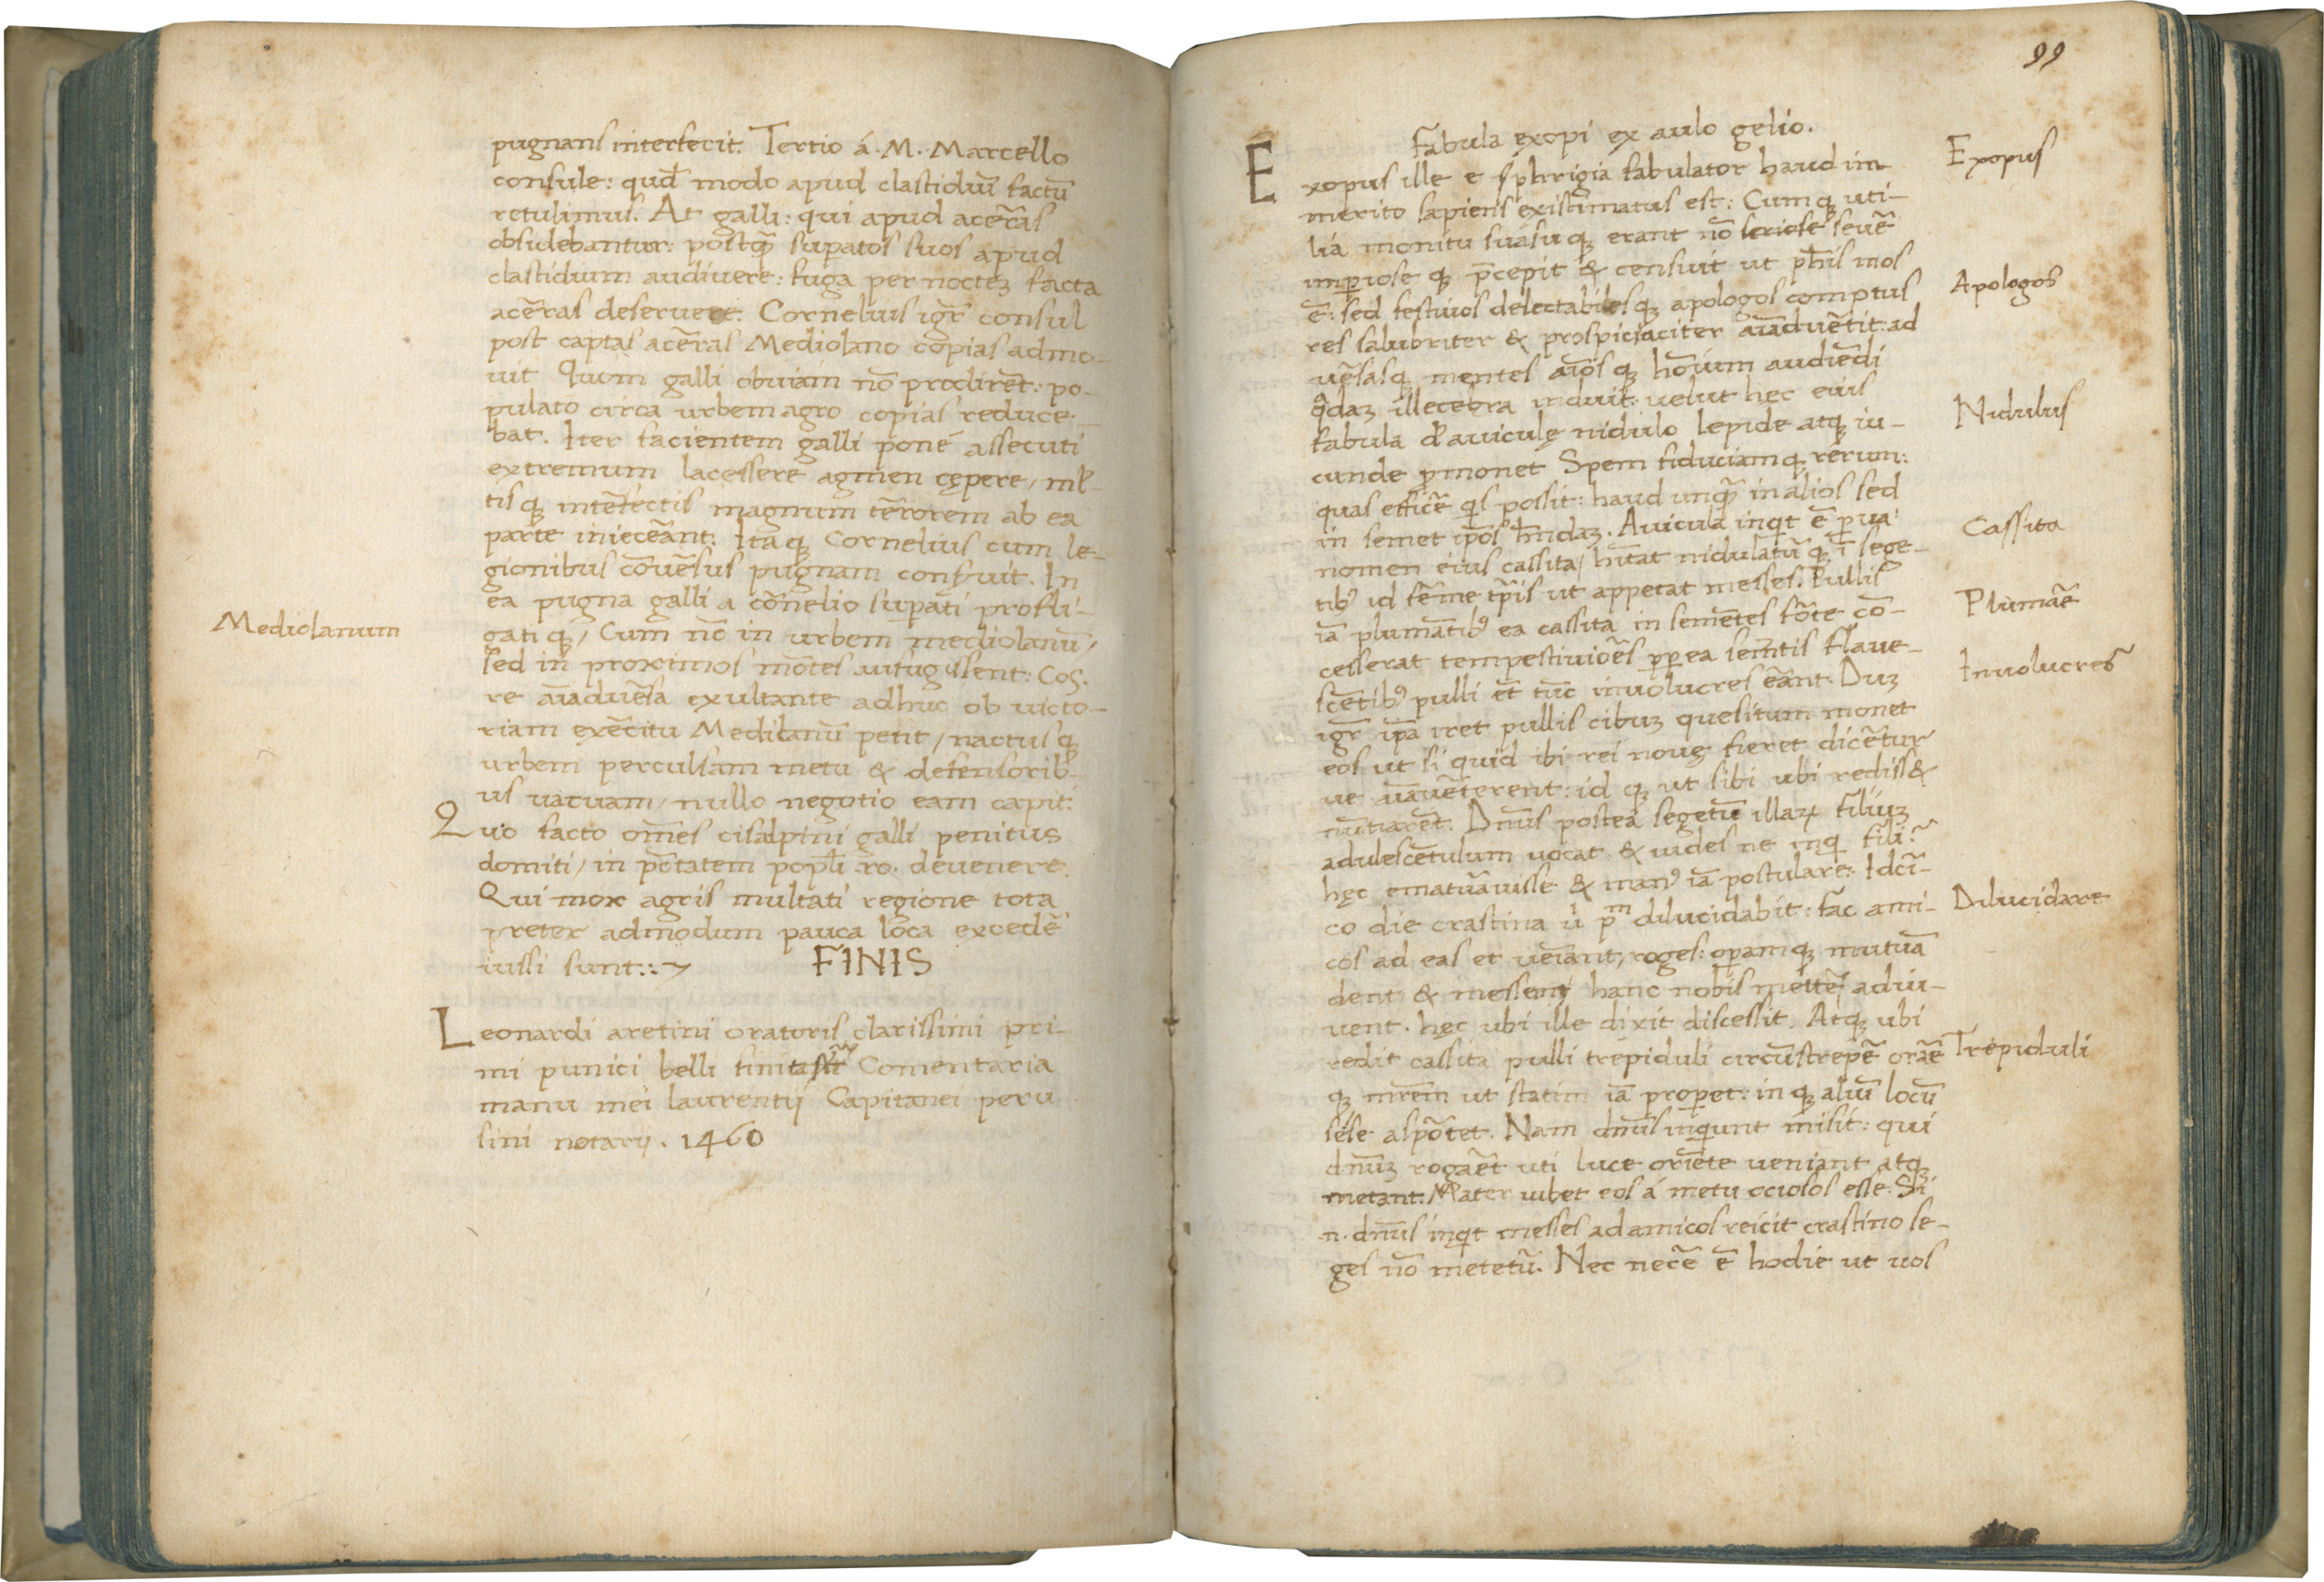 pugnans interfecit. Tertio á .M. Marcello
consule: quod̄ modo apud clastidiū factū
retulimus. At galli: qui apud acēras
obsidebantur: postq̄ supatos suos apud
clastidium audivere: fuga per noctez facta
acēras deseruere. Cornelius igr̄ consul
post captas acēras Mediolano copias admo-
uit Quom galli obuiam nō prodirēt: po-
pulato circa urbem agro copias reduce-
bat. Iter facientem galli poné assecuti
extremum lacessere agmen cępere, mil̄-
tisq; intēfectis magnum tērorem ab ea
parte iniecēant. Itaq; Cornelius cum le-
gionibus cōuēsus pugnam conseruit. In
ea pugna galli a cōnelio supati profli-
gatiq;, Cum nō in urbem mediolanū,
Mediolanum
sed in proximos mōtes aufugissent: Cos.
re aīaduēsa exultante adhuc ob uicto-
riam exēcitu Mediolanū petit, nactusq;
urbem perculsam metu & defensorib-
us uacuam, nullo negotio eam capit:
Quo facto om̄es cisalpini galli penitus
domiti, in p̄tatem popl̄i .ro. deuenere.
Qui mox agris multati regione tota
preter admodum pauca loca excedē
iussi sunt::~ FINIS
Leonardi aretini oratoris clarissimi pri-
mi punici belli finita sūt Comentaria
manu mei laurentij Capitanei peru
sini notarij. 1460
99
Fabula exopi ex aulo gelio.
Exopus ille e sphrigia fabulator haud im
Exopus
merito sapiens existimatus est: Cum q; uti-
lia monitu suasuq; erant nō seriose seuē
imperiose q; p̄cepit & censuit ut ph̄is mos
ē: sed festiuos delectabilesq; apologos comptus
Apologos
res salubriter & prospiciaciter aīaduētit: ad
uēsasq; mentes aīosq; hoīum audiēdi
q̄daz illecebra induit: uelut hęc eius
Nidulus
fabula d̄ auiculę nidulo lepide atq; iu-
cunde p̄monet Spem fiduciamq; rerum:
quas efficē q̄s possit: haud unq̄ in alios sed
in semet ip̄os h̄ndaz. Auicula inq̄t ē parua
nomen eius cassita, hītat nidulatūq; ī sege-
Cassita
tib; id fērme tp̄is ut appetat messes. Pullis
iā plumātib; ea cassita in semētes fōte cō-
Plumāe
cesserat tempestiuiōes p̄p ea semētis flaue-
scētib; pulli et tūc inuolucres eānt. Duz
Inuolucres
igr̄ ip̄a iret pullis cibuz quesitum monet
eos ut si quid ibi rei nouę fieret dicētur
ue aīaueterent: id q; ut sibi ubi rediss&
nuntiarēt. Dn̄us postea segetū illarꝝ filiuz
adulescētulum uocat & uides ne inq̄ fili?
hęc ematuāuisse & man; iā postulare: Idcī-
co die crastina ú pm̄ dilucidabit: fac ami-
Dilucidare
cos ad eas et ueniant, roges: operamq; mutuā
dent & messem hanc nobis mettē adiu-
uent. hęc ubi ille dixit discessit. Atq; ubi
redit cassita pulli trepiduli circūstrepē orāe
Trepiduli
q; mr̄em ut statim iā properet: inq; aliū locū
sése aspōtet. Nam dn̄us inquiunt misit: qui
dn̄uz rogaēt uti luce oriēte ueniant atq;
metant. Mater iubet eos á metu ociosos esse: Si
.n. dn̄us inq̄t messes ad amicos reicit crastino se-
ges nō metetū. Nec necē ē hodie ut uos